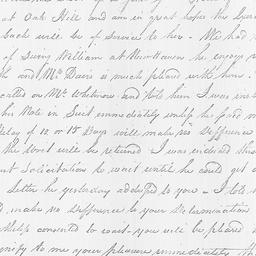 at Oak Hill and am in great hopes the
such will be of Service to her. We had
of Seeing William at New Haven he enjoys
the and Mr Davis is much pleased with him.
called on Mr Whitmore and told him I was
his Note in Suit immediately unless he paid
delay of 12 or 15 Days will make no Difference
the Writ will be returned I was induced
Solicitation to wait until he could get
Letter he yesterday addressed to you - I told
make no Difference in your Determination
consented to wait - you will be pleased
signify to me your pleasure immediately